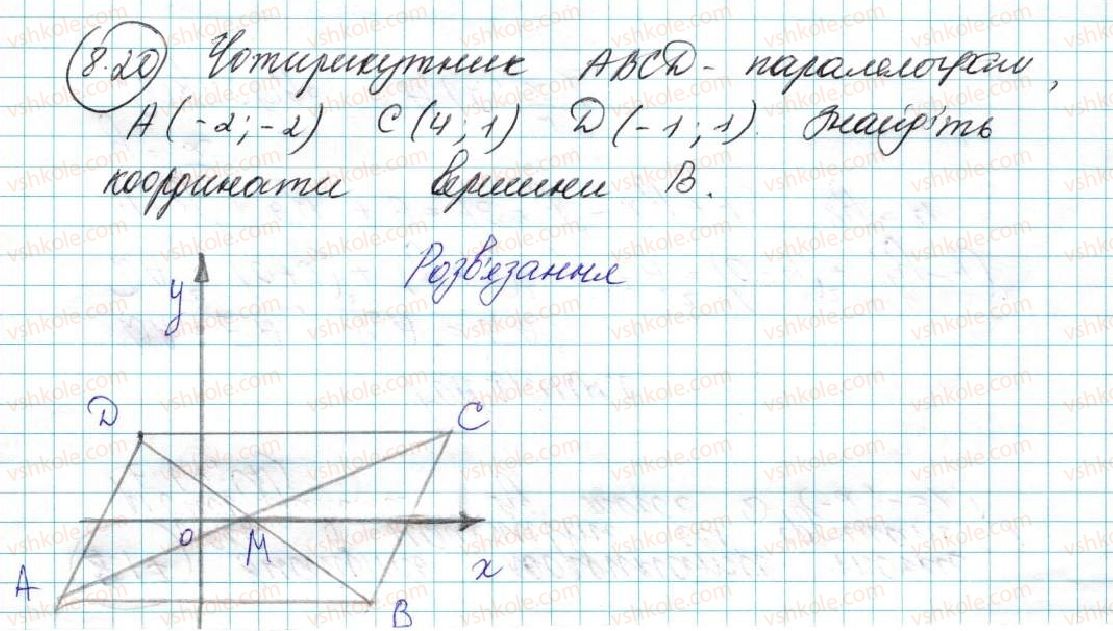 8.20 Чотирикутник ABCD - паралелограм,
A(-2;-2) C(4;1) D(-1;1). Знайдіть
координати вершини B.
Розв'язання
y
D
C
0
M
x
A
B